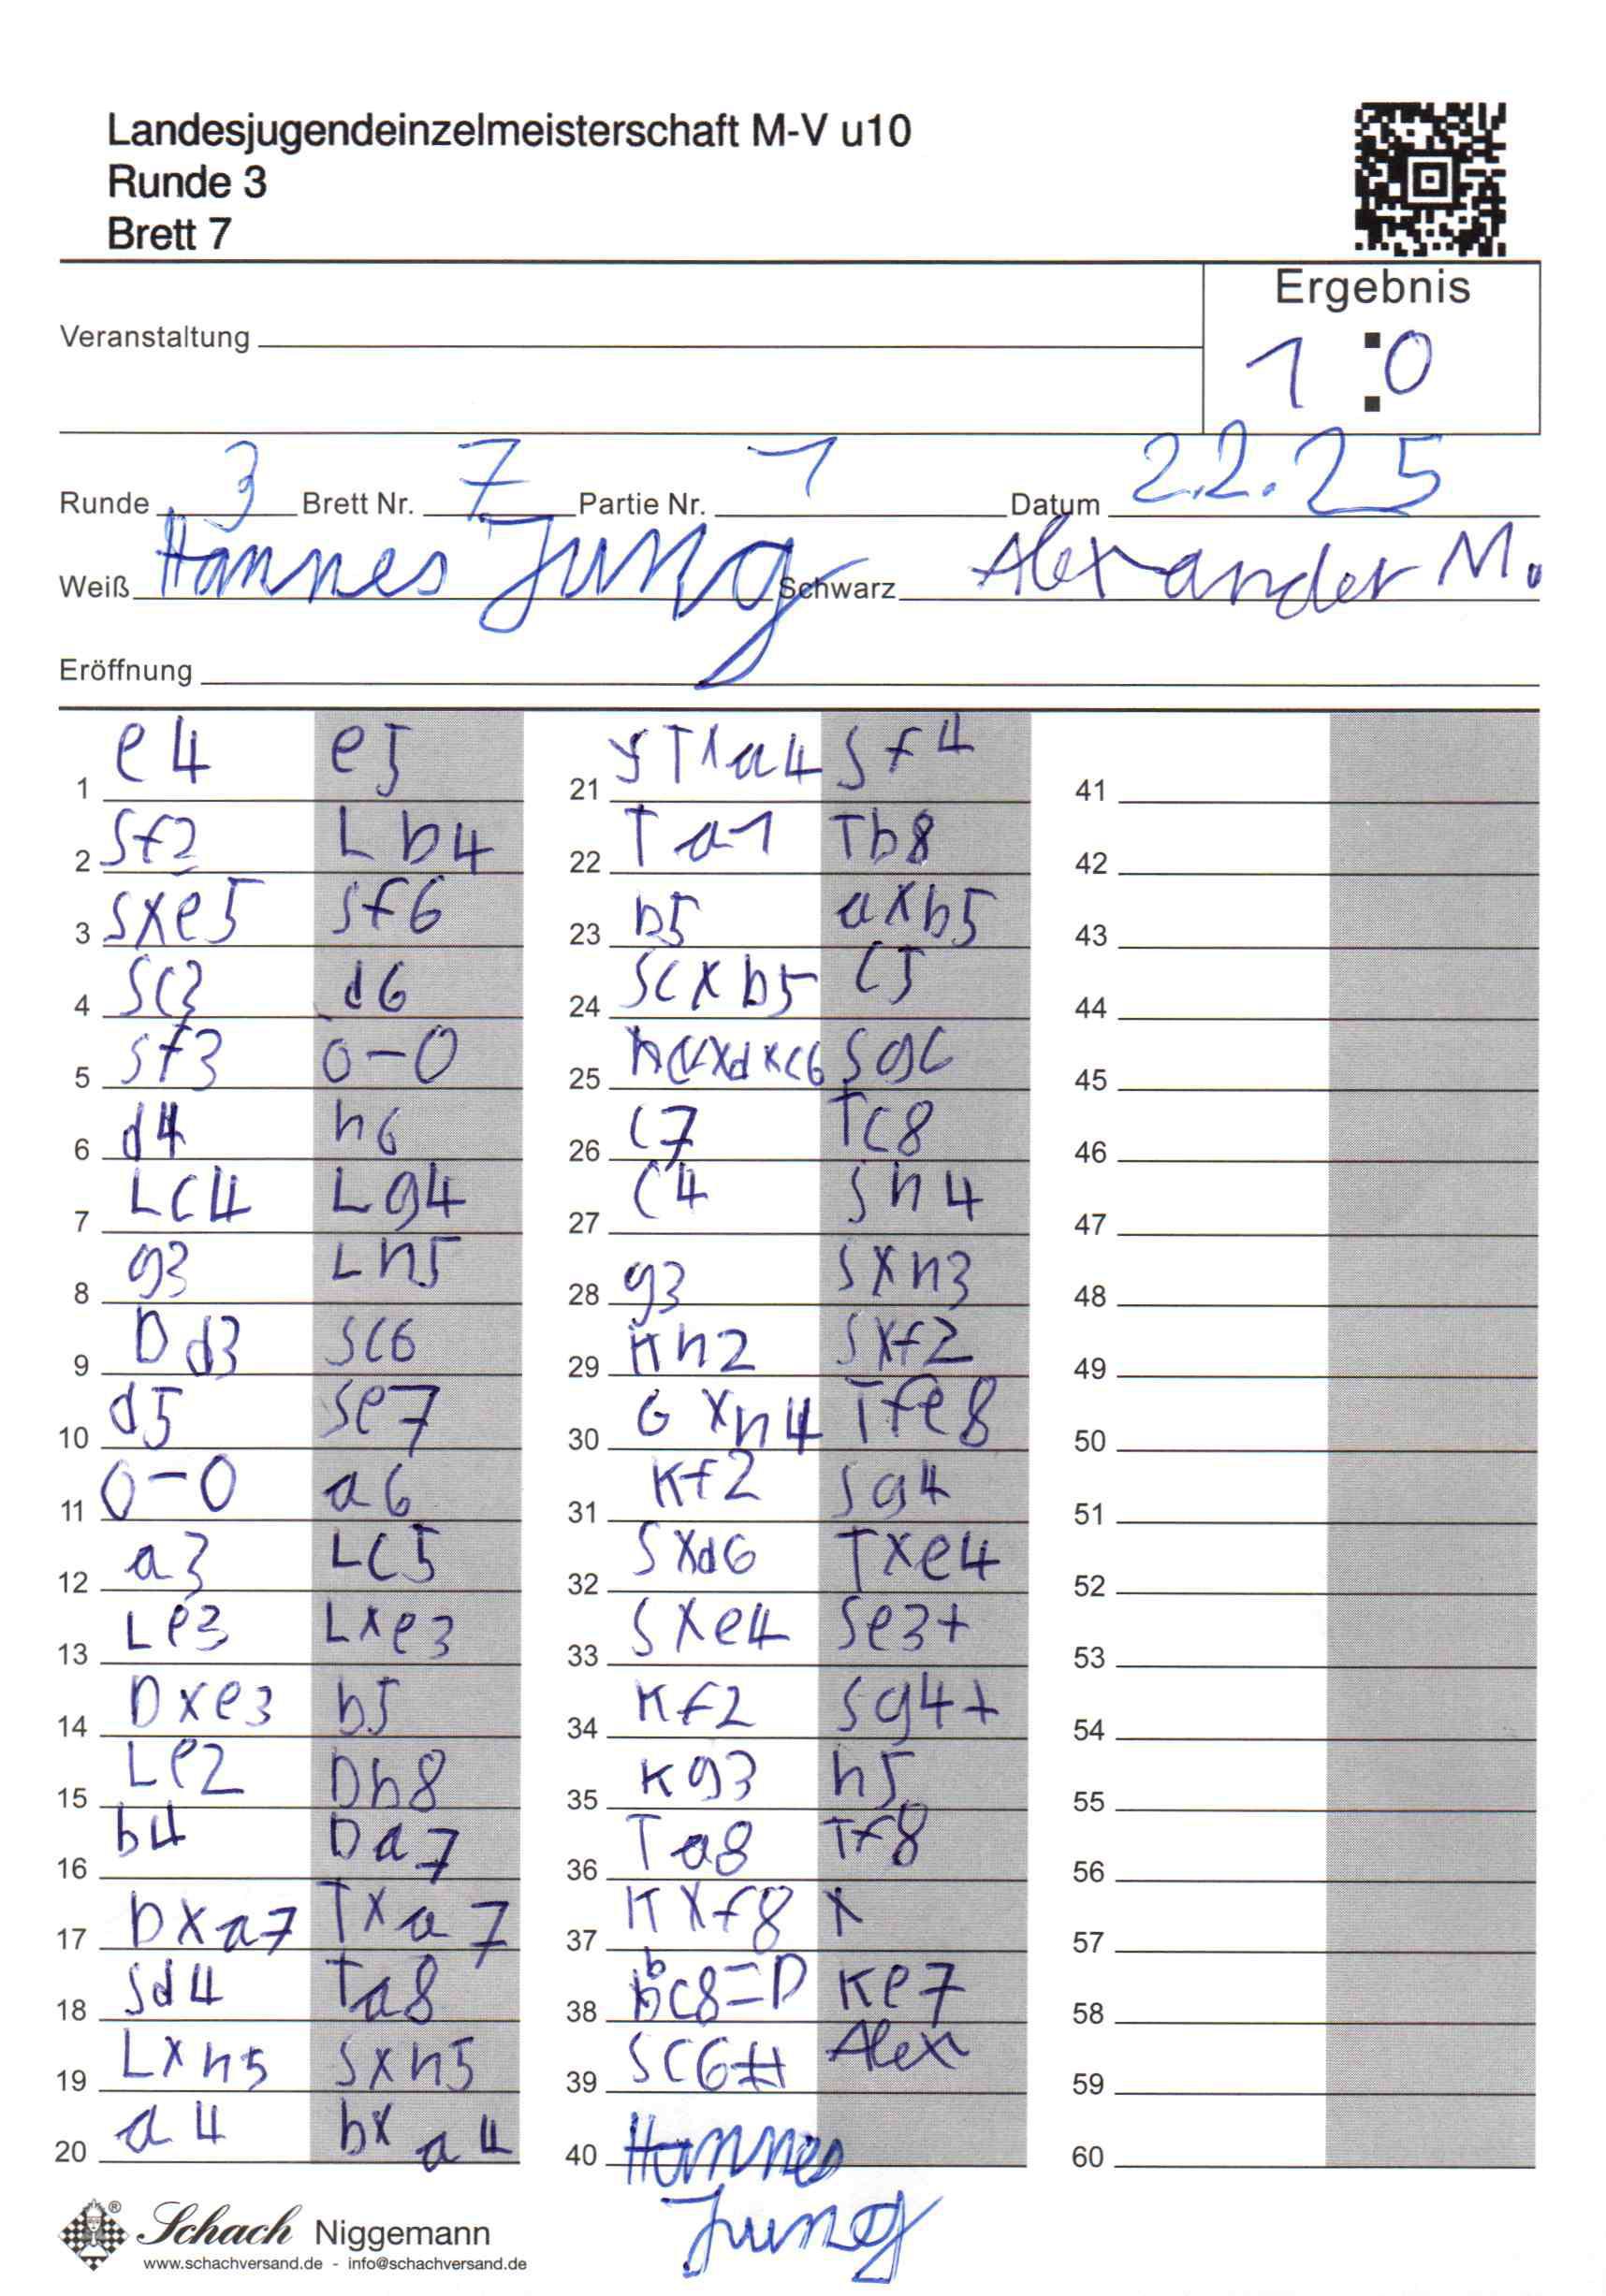 Landesjugendeinzelmeisterschaft M-V u10
Runde 3
Brett 7
Ergebnis
Veranstaltung
1 : 0
Runde 3 Brett Nr. 7 Partie Nr. 1 Datum 2.2.25
Weiß Hannes Jung Schwarz Alexander M.
Eröffnung
1 e4 e5 21 STxa4 Sf4 41
2 Sf2 Lb4 22 Ta1 Tb8 42
3 Sxe5 Sf6 23 b5 axb5 43
4 Sc3 d6 24 Scxb5 c5 44
5 Sf3 0-0 25 dxc6 Sg6 45
6 d4 h6 26 c7 Tc8 46
7 Lc4 Lg4 27 c4 Sh4 47
8 g3 Lh5 28 g3 Sxh3 48
9 Dd3 Sc6 29 Kh2 Sxf2 49
10 d5 Se7 30 Gxh4 Tfe8 50
11 0-0 a6 31 Kf2 Sg4 51
12 a3 Lc5 32 Sxd6 Txe4 52
13 Le3 Lxe3 33 Sxe4 Se3+ 53
14 Dxe3 b5 34 Kf2 Sg4+ 54
15 Le2 Db8 35 Kg3 h5 55
16 b4 Da7 36 Ta8 Tf8 56
17 Dxa7 Txa7 37 Kxf8 x 57
18 Sd4 Ta8 38 bc8=D Ke7 58
19 Lxh5 Sxh5 39 Sc6# Alex 59
20 a4 bxa4 40 Hannes 60
Jung
Schach Niggemann
www.schachversand.de - info@schachversand.de